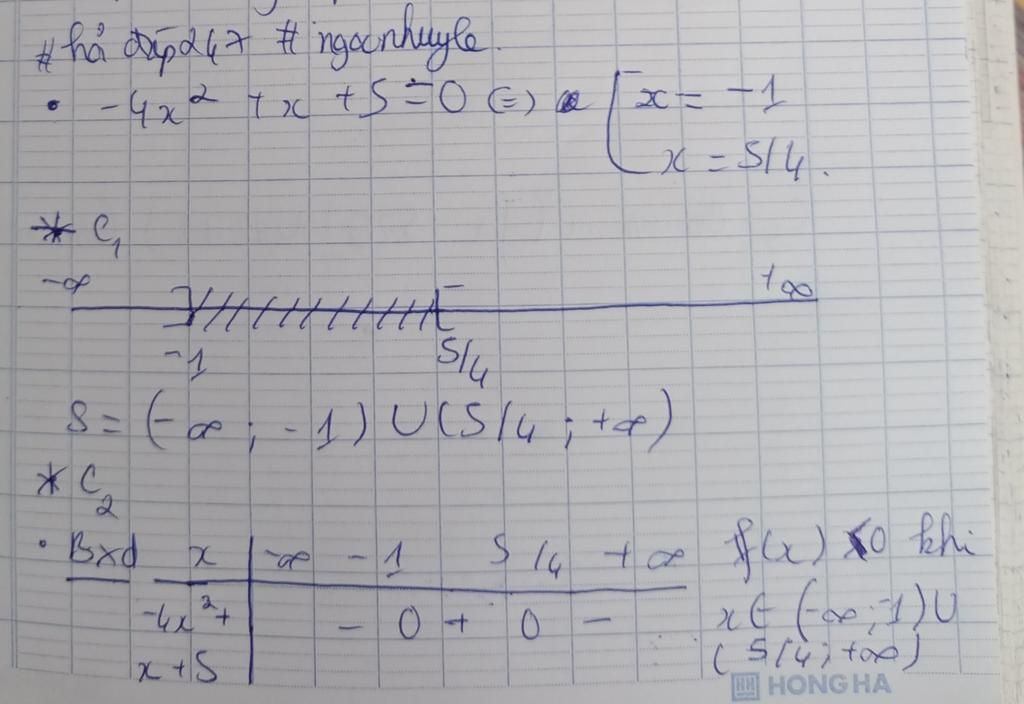 #hỏi đáp247 #ngocnhuyle.
• -4x² + x + 5 = 0 (=) [ x = -1
x = 5/4.
* C₁
-∞ ] [ +∞
-1 5/4
S = (-∞; -1) U (5/4; +∞)
* C₂
• Bxd x -∞ -1 5/4 +∞ f(x) <0 khi
-4x²+ - 0 + 0 - x ∈ (-∞; -1) U
x + 5 (5/4; +∞)
HONG HA